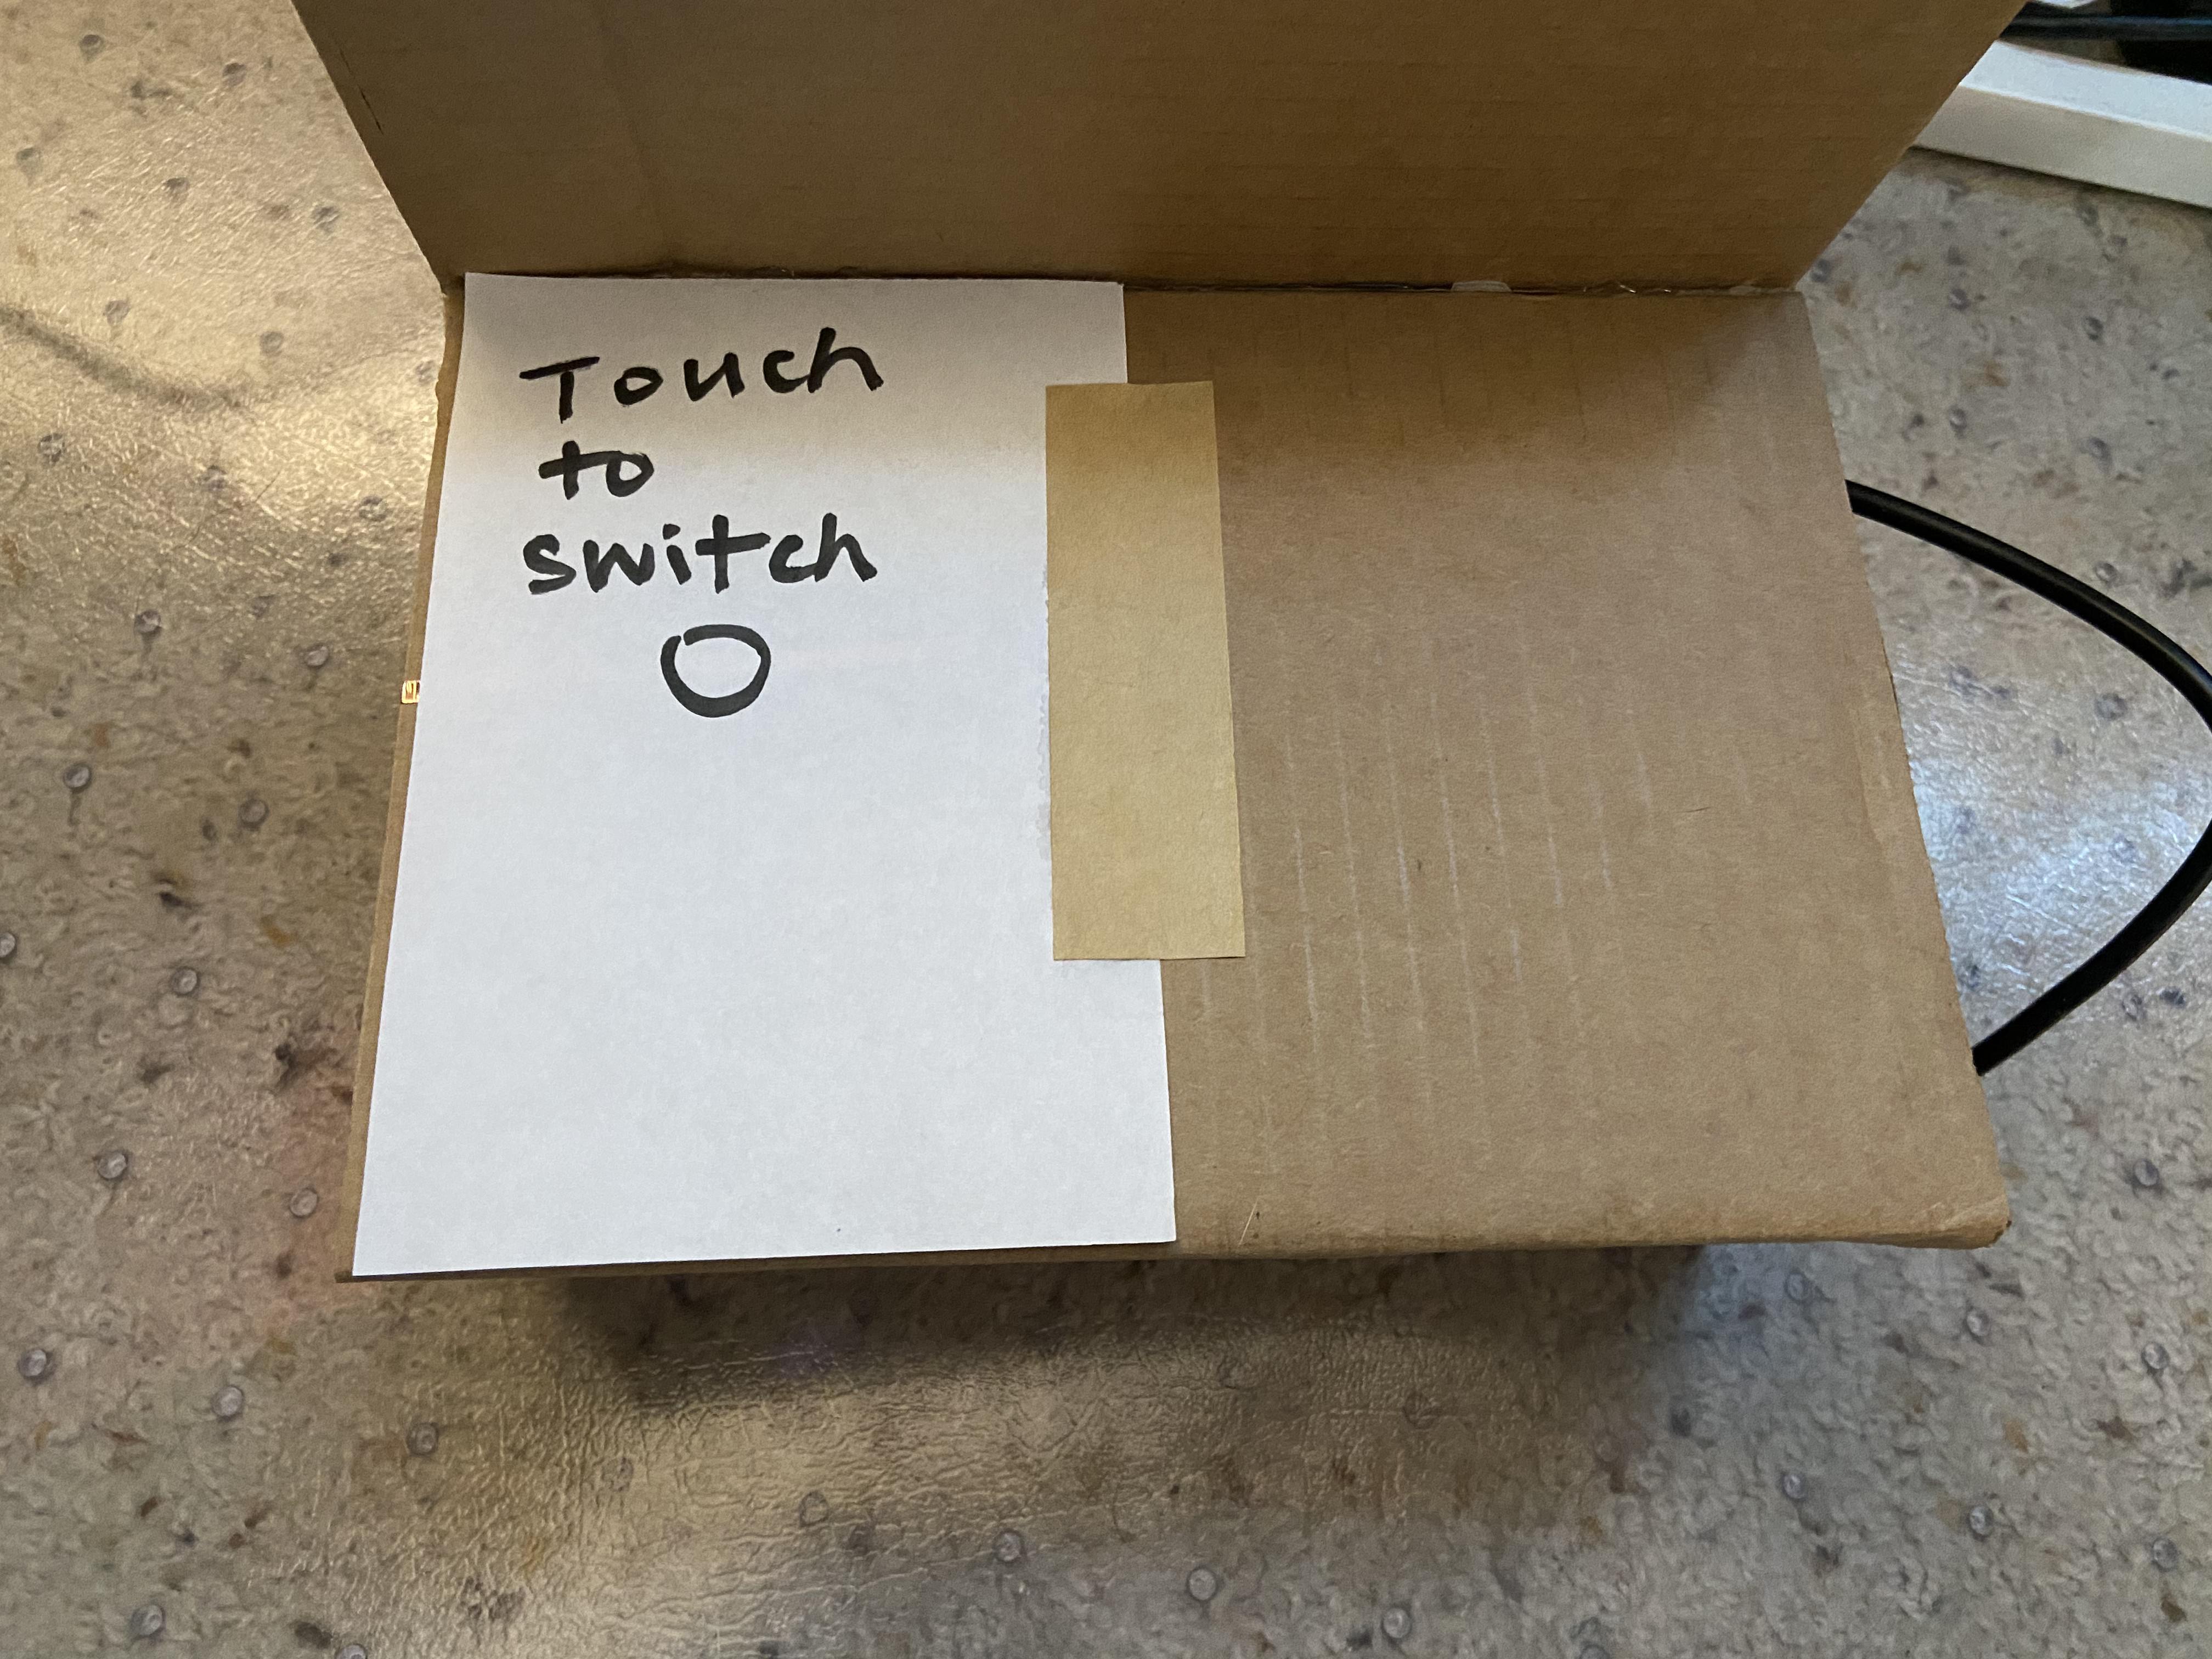 Touch
to
switch